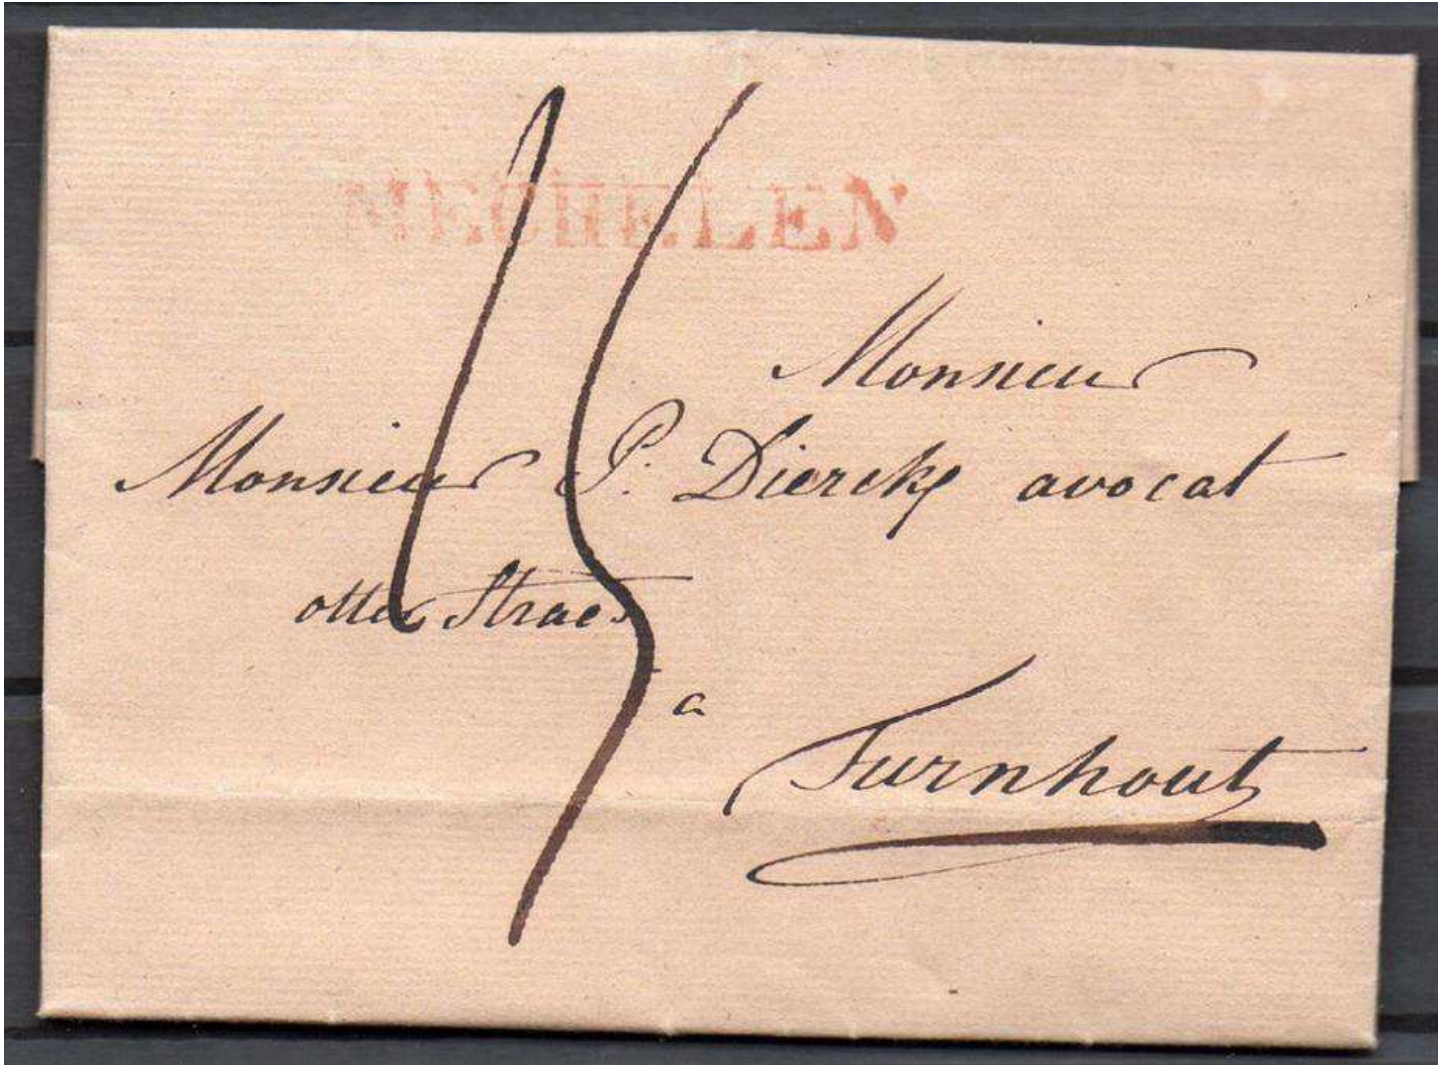 MECHELEN
Monsieur
Monsieur P. Dierckx avocat
otter Straet
a
Turnhout